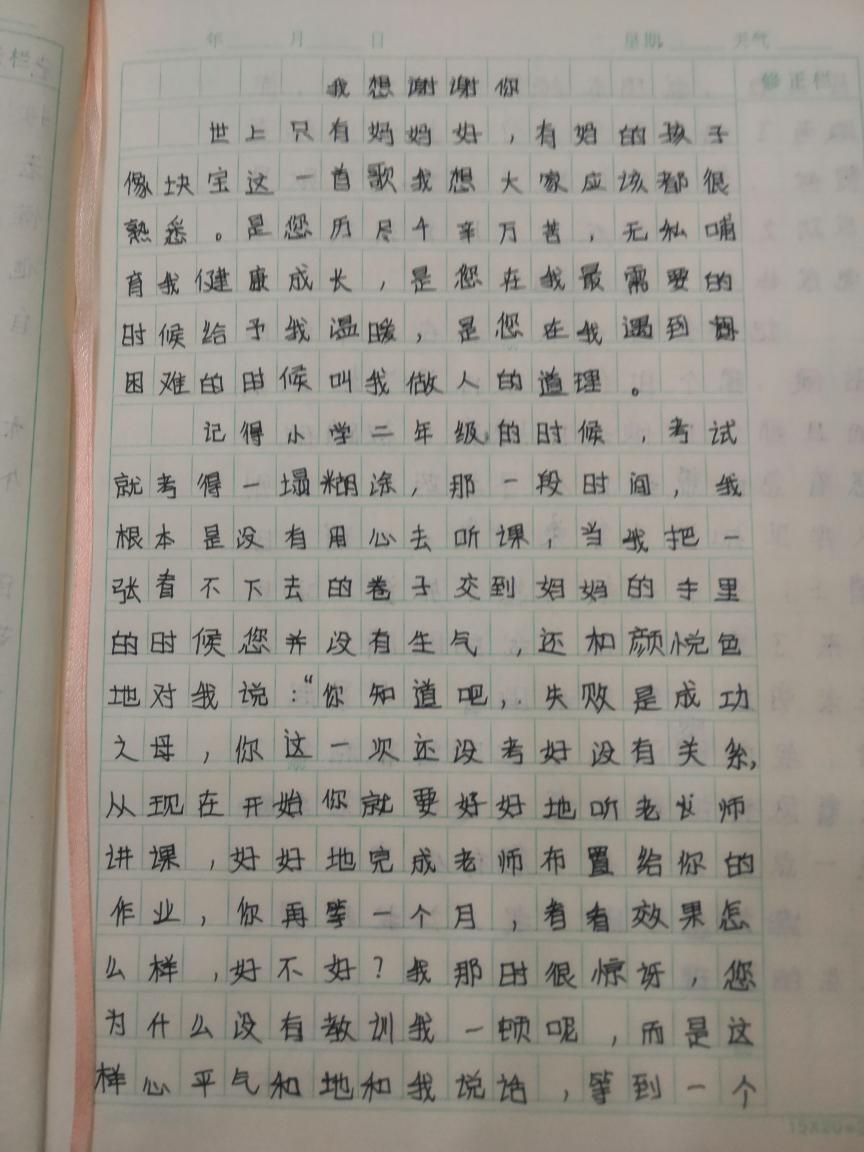 年 月 日 星期 天气
修正栏
我想谢谢你
世上只有妈妈好，有妈的孩子
像块宝这一首歌我想大家应该都很
熟悉。是您历尽千辛万苦，无私哺
育我健康成长，是您在我最需要的
时候给予我温暖，是您在我遇到
困难的时候叫我做人的道理。
记得小学二年级的时候，考试
就考得一塌糊涂，那一段时间，我
根本是没有用心去听课，当我把一
张看不下去的卷子交到妈妈的手里
的时候您并没有生气，还和颜悦色
地对我说：“你知道吧，失败是成功
之母，你这一次还没考好没有关系，
从现在开始你就要好好地听老师
讲课，好好地完成老师布置给你的
作业，你再等一个月，看看效果怎
么样，好不好？我那时很惊讶，您
为什么没有教训我一顿呢，而是这
样心平气和地和我说话，等到一个